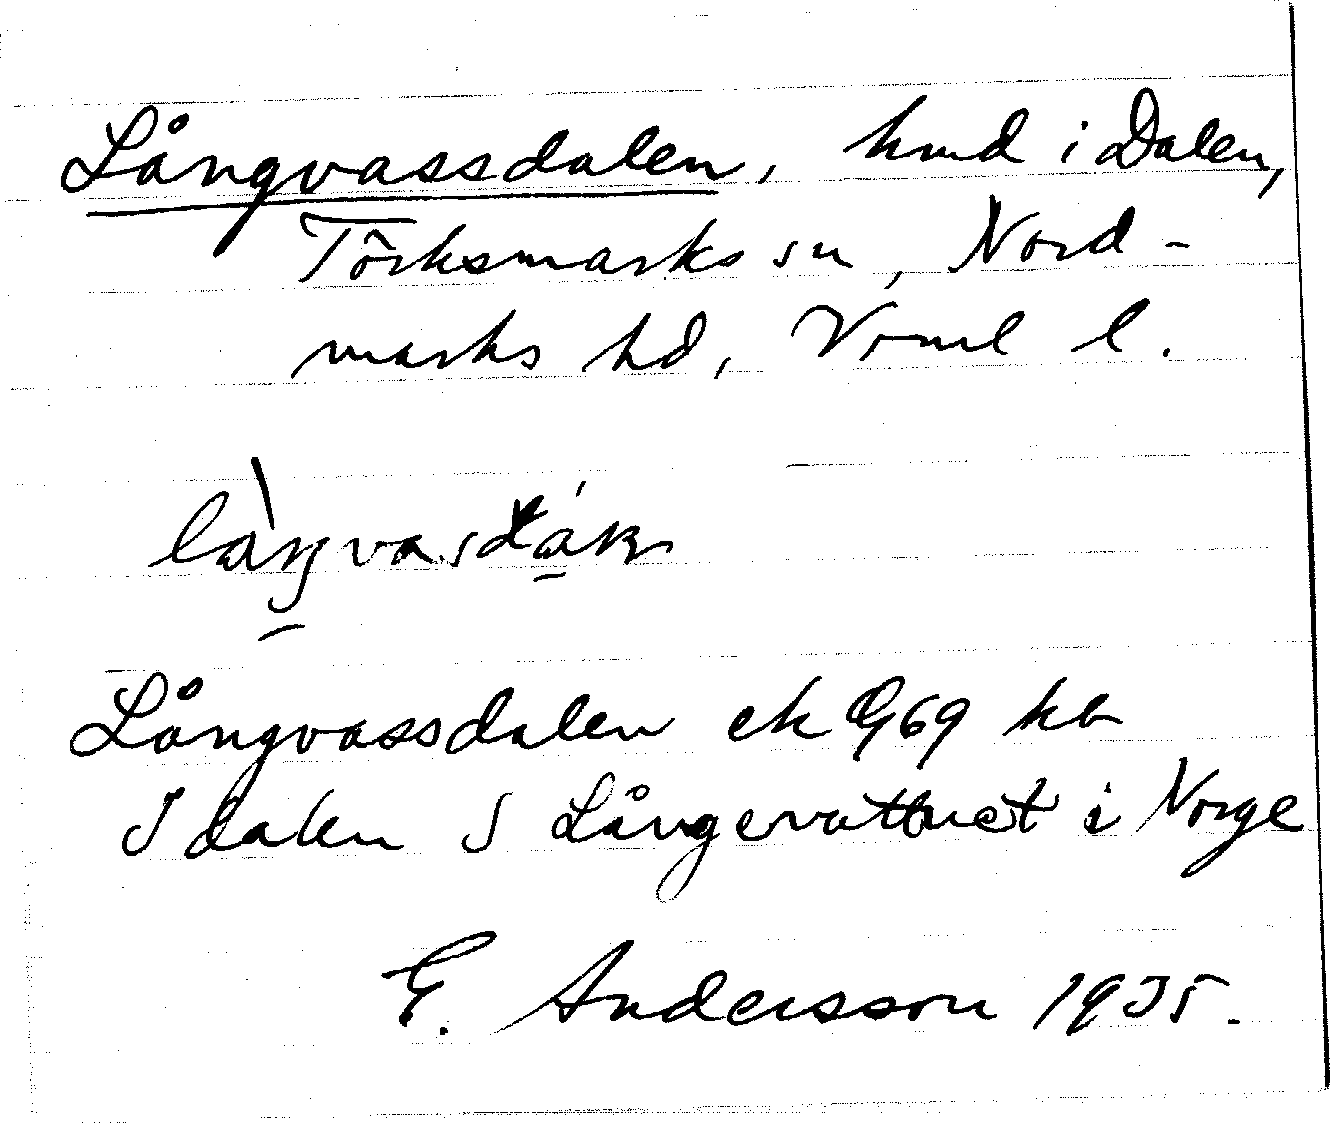 Långvassdalen, hmd i Dalen,
Törksmarks sn, Nord-
marks hd, Vrml l.
Långvassdalen ek 9G69 kb
I dalen S Långevattnet i Norge
E. Andersson 1935.